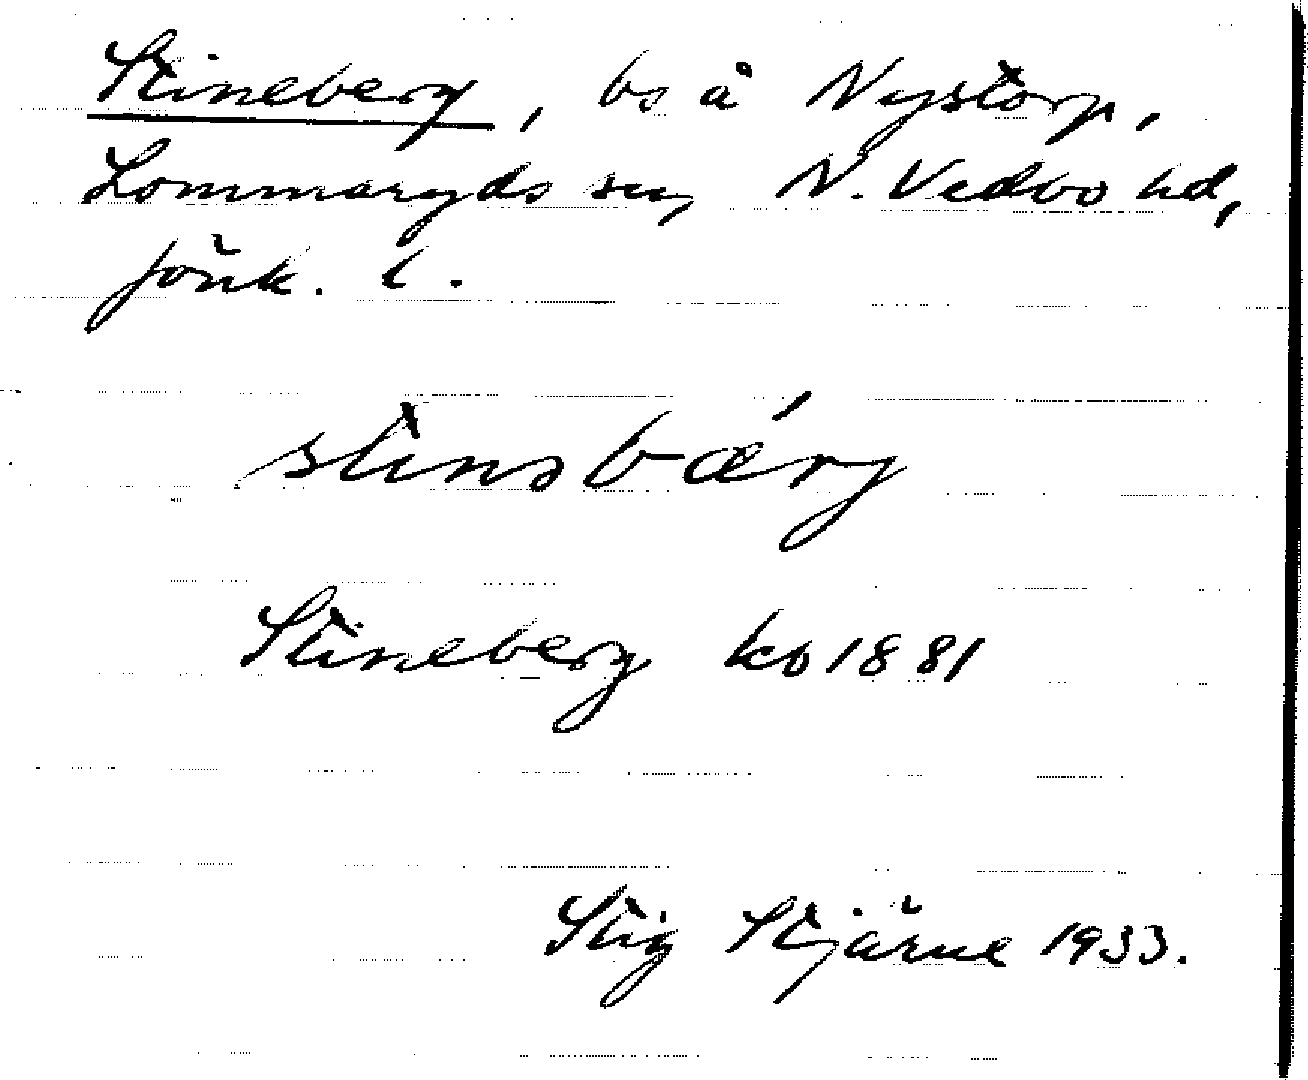 Stineberg, bs å Nystorp,
Lommaryds sn, N. Vedbo hd,
Jönk. l.
stinəbærg
Stineberg kb 1881
Stig Stjärne 1933.